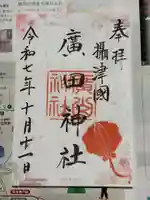 奉拝
攝津國
廣田神社
令和七年十月十一日